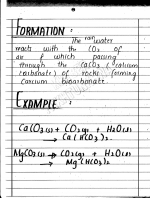 FORMATION:
The rain water
reacts with the CO2 of
air & which passing
through the CaCO3 (calcium
carbonate) of rocks forming
Calcium bicarbonate.
EXAMPLE:
CaCO3(s) + CO2(g) + H2O(l)
→ Ca(HCO3)2.
MgCO3(s) → CO2(g) + H2O(l)
→ Mg(HCO3)2